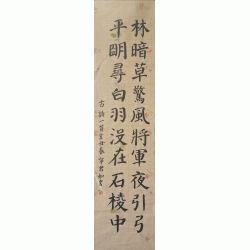 林暗草驚風將軍夜引弓
平明尋白羽没在石棱中